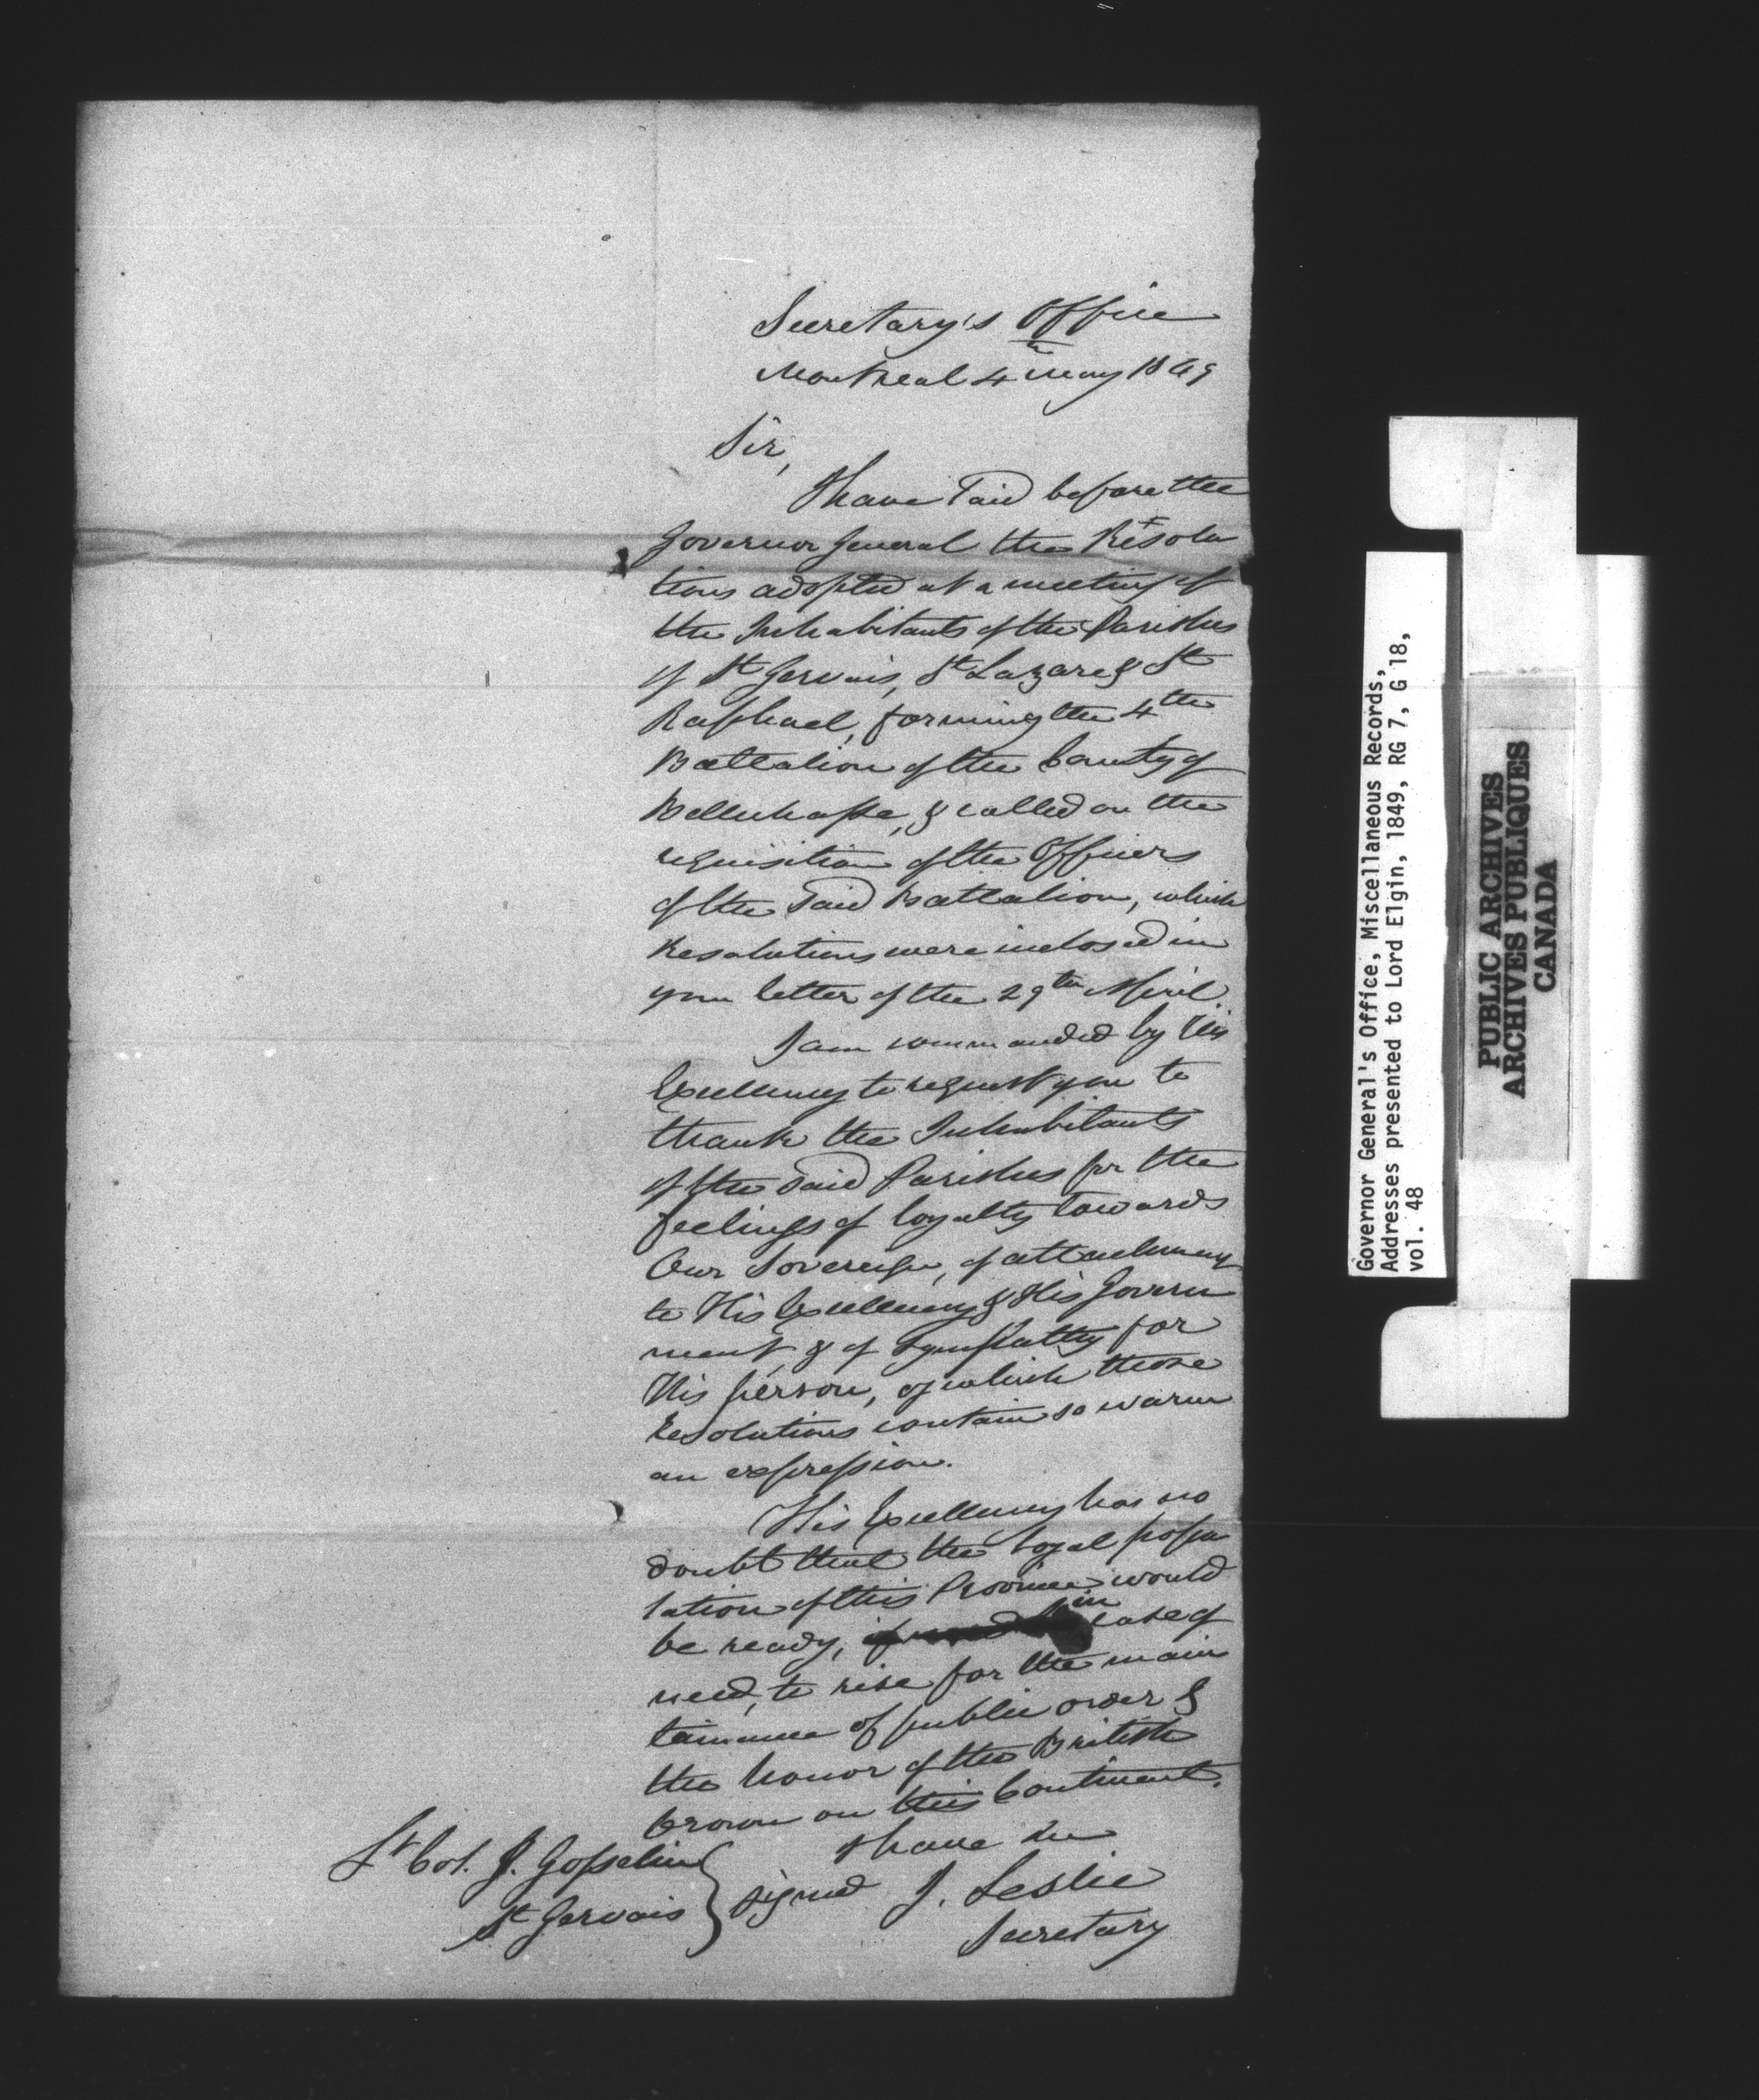 Secretary's Office
Montreal 4th May 1849
Sir,
I have laid before the
Governor General the Resolu
tions adopted at a meeting of
the Inhabitants of the Parishes
of St Gervais, St Lazare & St
Raphael, forming the 4th
Battalion of the County of
Bellechasse, & called on the
requisition of the Officers
of the said Battalion, which
Resolutions were inclosed in
your letter of the 29th April.
I am commanded by His
Excellency to request you to
thank the Inhabitants
of the said Parishes for the
feelings of loyalty towards
Our Sovereign, of attachment
to His Excellency & His Govern
ment, & of sympathy for
His person, of which those
Resolutions contain so warm
an expression.
His Excellency has no
doubt that the loyal popu
lation of this Province would
be ready, in case of
need, to rise for the main
tainance of public order &
the honor of the British
Crown on this Continent.
I have &c
Lt Col. J. Gosselin
St Gervais
signed J. Leslie
Secretary
Governor General's Office, Miscellaneous Records,
Addresses presented to Lord Elgin, 1849, RG 7, G 18,
vol. 48
PUBLIC ARCHIVES
ARCHIVES PUBLIQUES
CANADA